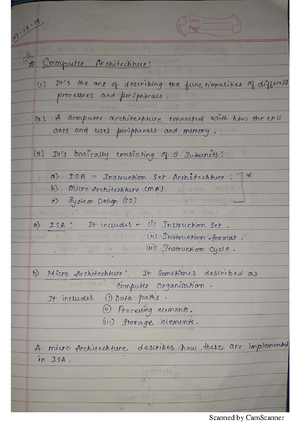 Date
Page
Computer Architechture:
(1) It's the art of describing the functionalities of different
processors and peripherals.
(2) A computer architechture connected with how the CPU
acts and uses peripherals and memory.
(3) It's basically consisting of 3 Subunits:
a) ISA = Instruction Set Architecture.
b) Micro Architecture (MA).
c) System Design (SD)
a) ISA: It includes (i) Instruction Set.
(ii) Instruction format.
(iii) Instruction Cycle.
b) Micro Architecture: It Sometimes described as
Computer Organisation.
It includes (i) Data paths.
(ii) Processing elements.
(iii) Storage elements.
A micro Architecture describes how these are implemented
in ISA.
Scanned by CamScanner